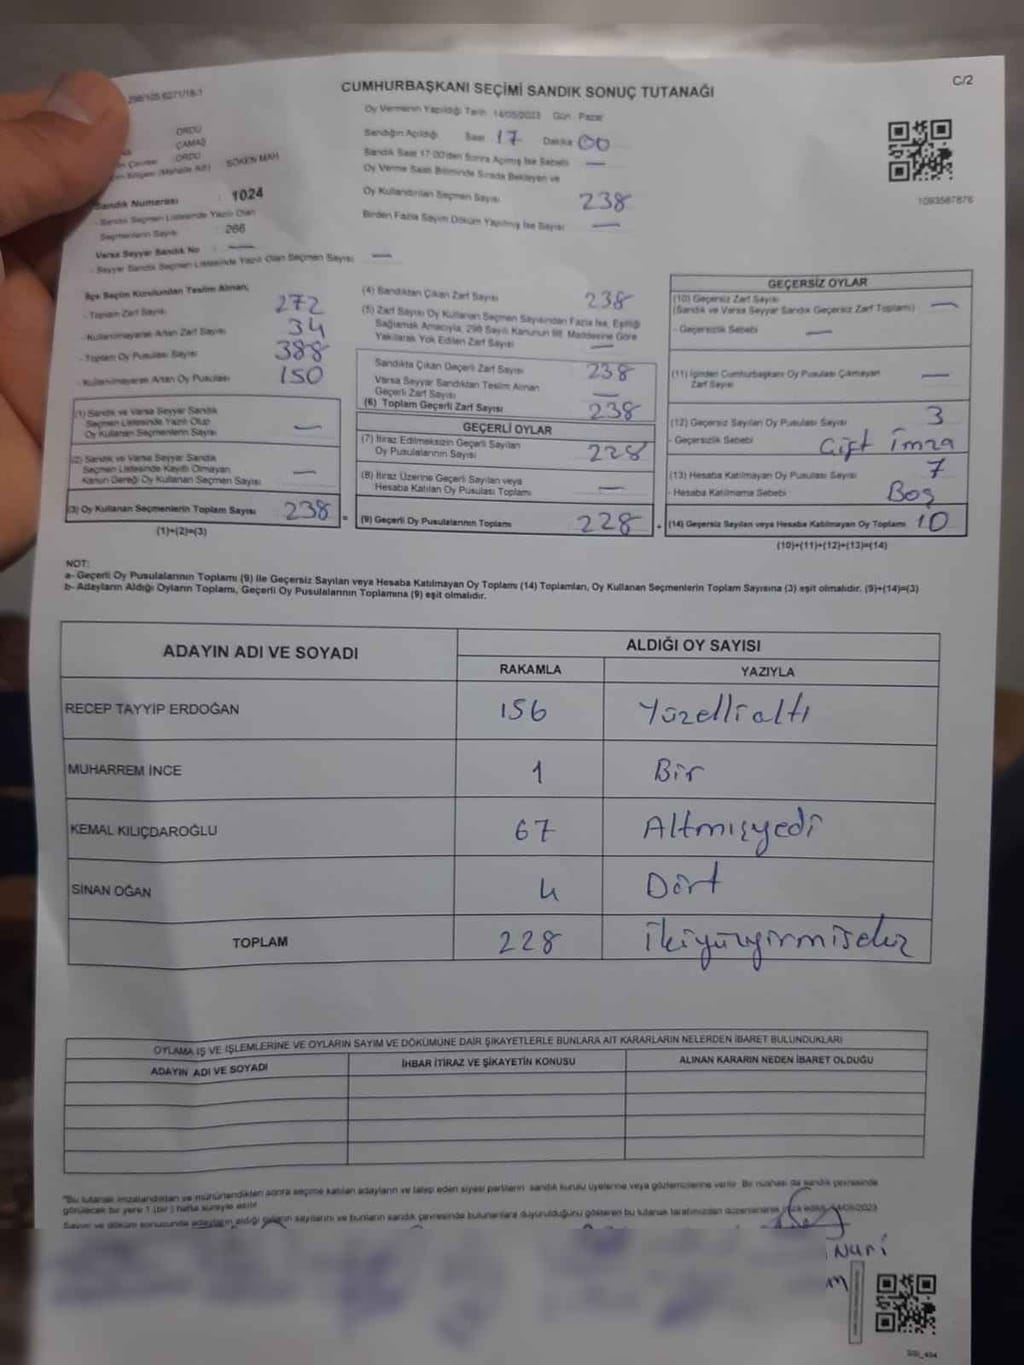 298/105.6271/18-1
C/2
CUMHURBAŞKANI SEÇİMİ SANDIK SONUÇ TUTANAĞI
Oy Vermenin Yapıldığı Tarih 14/05/2023 Gün Pazar
Sandığın Açıldığı Saat 17 Dakika 00
Sandık Saat 17:00'den Sonra Açılmış İse Sebebi —
Oy Verme Saati Bitiminde Sırada Bekleyen ve
Oy Kullandırılan Seçmen Sayısı 238
Birden Fazla Sayım Döküm Yapılmış İse Sayısı —
1093587876
ORDU
ÇAMAŞ
ORDU
SÖKEN MAH
Sandık Numarası : 1024
- Sandık Seçmen Listesinde Yazılı Olan
Seçmenlerin Sayısı : 266
Varsa Seyyar Sandık No —
- Seyyar Sandık Seçmen Listesinde Yazılı Olan Seçmen Sayısı —
İlçe Seçim Kurulundan Teslim Alınan;
- Toplam Zarf Sayısı 272
- Kullanılmayarak Artan Zarf Sayısı 34
- Toplam Oy Pusulası Sayısı 388
- Kullanılmayarak Artan Oy Pusulası 150
(1) Sandık ve Varsa Seyyar Sandık
Seçmen Listesinde Yazılı Olup
Oy Kullanan Seçmenlerin Sayısı —
(2) Sandık ve Varsa Seyyar Sandık
Seçmen Listesinde Kayıtlı Olmayan
Kanun Gereği Oy Kullanan Seçmen Sayısı —
(3) Oy Kullanan Seçmenlerin Toplam Sayısı 238 =
(1)+(2)=(3)
(4) Sandıktan Çıkan Zarf Sayısı 238
(5) Zarf Sayısı Oy Kullanan Seçmen Sayısından Fazla İse, Eşitliği
Sağlamak Amacıyla, 298 Sayılı Kanunun 98. Maddesine Göre
Yakılarak Yok Edilen Zarf Sayısı —
Sandıkta Çıkan Geçerli Zarf Sayısı 238
Varsa Seyyar Sandıktan Teslim Alınan
Geçerli Zarf Sayısı —
(6) Toplam Geçerli Zarf Sayısı 238
GEÇERLİ OYLAR
(7) İtiraz Edilmeksizin Geçerli Sayılan
Oy Pusulalarının Sayısı 228
(8) İtiraz Üzerine Geçerli Sayılan veya
Hesaba Katılan Oy Pusulası Toplamı —
(9) Geçerli Oy Pusulalarının Toplamı 228 +
GEÇERSİZ OYLAR
(10) Geçersiz Zarf Sayısı
(Sandık ve Varsa Seyyar Sandık Geçersiz Zarf Toplamı) —
- Geçersizlik Sebebi —
(11) İçinden Cumhurbaşkanı Oy Pusulası Çıkmayan
Zarf Sayısı —
(12) Geçersiz Sayılan Oy Pusulası Sayısı 3
- Geçersizlik Sebebi Çift İmza
(13) Hesaba Katılmayan Oy Pusulası Sayısı 7
- Hesaba Katılmama Sebebi Boş
(14) Geçersiz Sayılan veya Hesaba Katılmayan Oy Toplamı 10
(10)+(11)+(12)+(13)=(14)
NOT:
a- Geçerli Oy Pusulalarının Toplamı (9) ile Geçersiz Sayılan veya Hesaba Katılmayan Oy Toplamı (14) Toplamları, Oy Kullanan Seçmenlerin Toplam Sayısına (3) eşit olmalıdır. (9)+(14)=(3)
b- Adayların Aldığı Oyların Toplamı, Geçerli Oy Pusulalarının Toplamına (9) eşit olmalıdır.
ADAYIN ADI VE SOYADI
ALDIĞI OY SAYISI
RAKAMLA YAZIYLA
RECEP TAYYİP ERDOĞAN 156 Yüzellialtı
MUHARREM İNCE 1 Bir
KEMAL KILIÇDAROĞLU 67 Altmışyedi
SİNAN OĞAN 4 Dört
TOPLAM 228 İkiyüzyirmisekiz
OYLAMA İŞ VE İŞLEMLERİNE VE OYLARIN SAYIM VE DÖKÜMÜNE DAİR ŞİKAYETLERLE BUNLARA AİT KARARLARIN NELERDEN İBARET BULUNDUKLARI
ADAYIN ADI VE SOYADI İHBAR İTİRAZ VE ŞİKAYETİN KONUSU ALINAN KARARIN NEDEN İBARET OLDUĞU
"Bu tutanak imzalandıktan ve mühürlendikten sonra seçime katılan adayların ve talep eden siyasi partilerin sandık kurulu üyelerine veya gözlemcilerine verilir. Bir nüshası da sandık çevresinde
görülecek bir yere 1 (bir) hafta süreyle asılır.
Sayım ve döküm sonucunda adayların aldığı oyların sayılarını ve bunların sandık çevresinde bulunanlara duyurulduğunu gösteren bu tutanak tarafımızdan düzenlenerek imza edildi.
Nuri